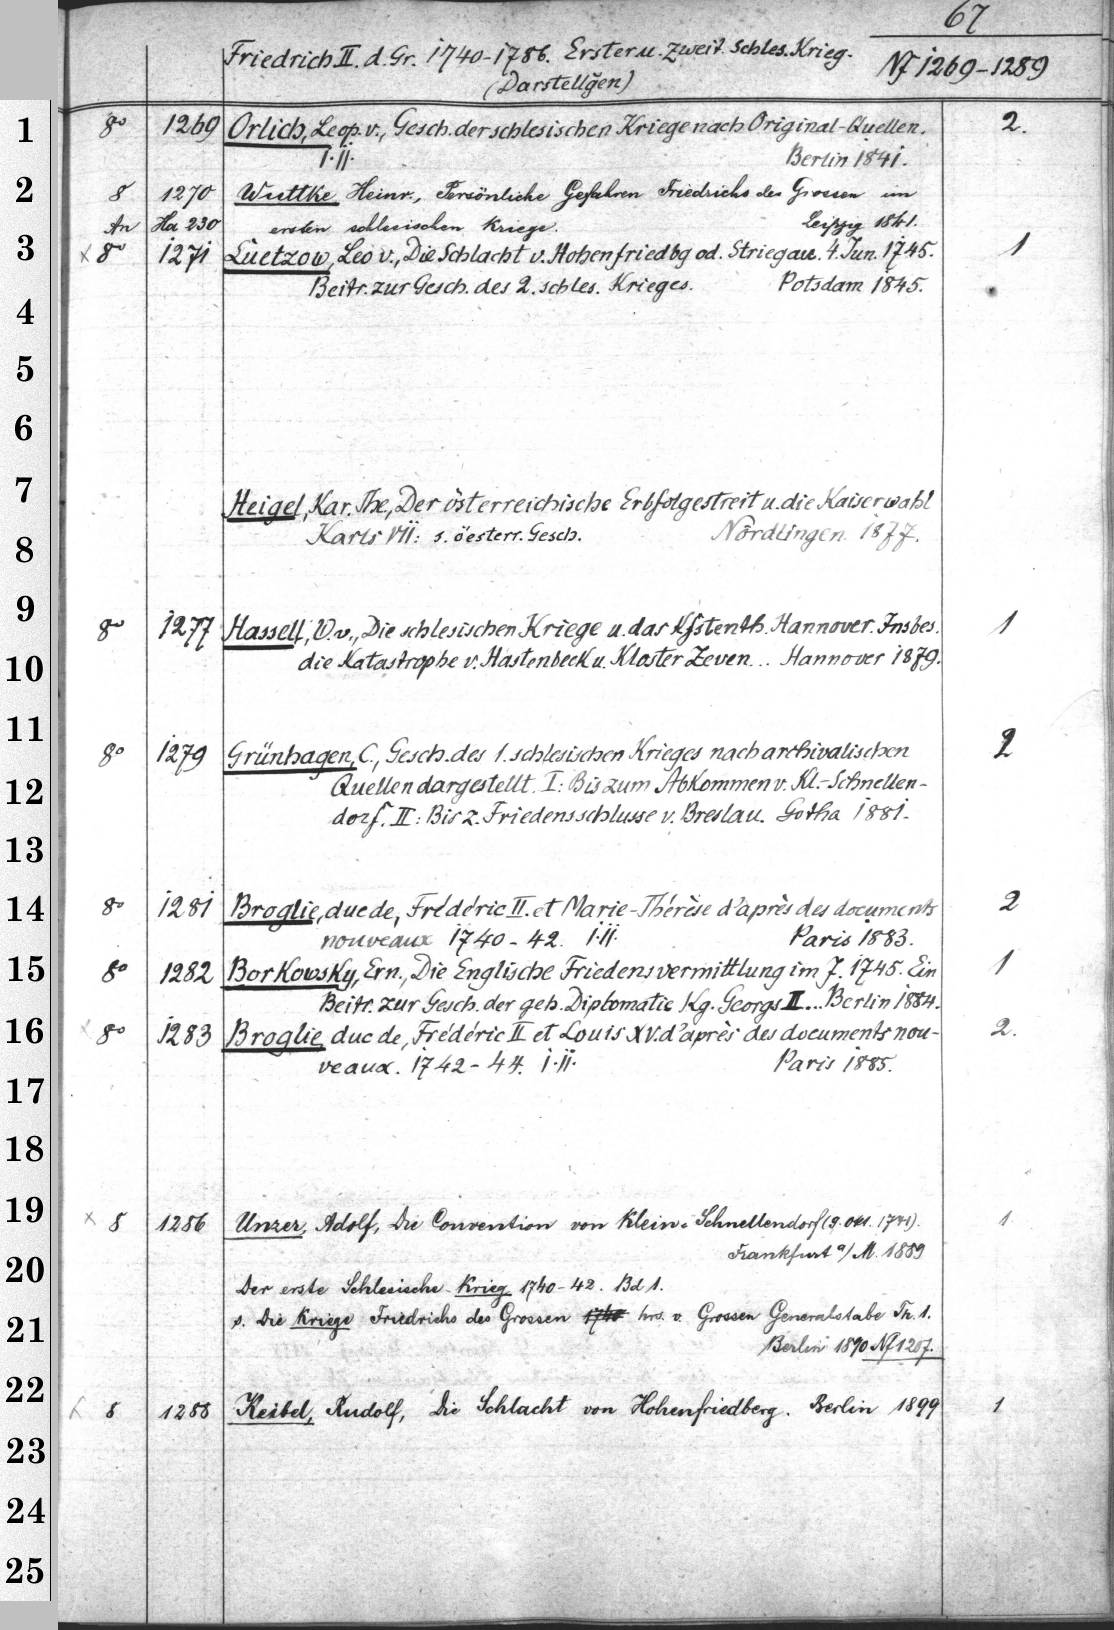 67
Friedrich II. d. Gr. 1740-1786. Erster u. zweit. Schles. Krieg.
(Darstellgen)
Nf 1269-1289
1 8° 1269 Orlich, Leop. v., Gesch. der schlesischen Kriege nach Original-Quellen. 2.
I.II. Berlin 1841.
2 8 1270 Wuttke Heinr., Persönliche Gefahren Friedrichs des Grossen im
An Ha 230 ersten schlesischen Kriege. Leipzig 1841.
3 x 8° 1271 Luetzow, Leo v., Die Schlacht v. Hohenfriedbg od. Striegau. 4. Jun. 1745. 1
Beitr. zur Gesch. des 2. schles. Krieges. Potsdam 1845.
4
5
6
7 Heigel, Kar. The, Der österreichische Erbfolgestreit u. die Kaiserwahl
8 Karls VII: s. öesterr. Gesch. Nördlingen 1877.
9 8° 1277 Hassell, W. v., Die schlesischen Kriege u. das Kfstenth. Hannover. Insbes. 1
10 die Katastrophe v. Hastenbeck u. Kloster Zeven... Hannover 1879.
11 8° 1279 Grünhagen, C., Gesch. des 1. schlesischen Krieges nach archivalischen 2
12 Quellen dargestellt. I: Bis zum Abkommen v. Kl.-Schnellen-
dorf. II: Bis z. Friedensschlusse v. Breslau. Gotha 1881.
13
14 8° 1281 Broglie, duc de, Frédéric II. et Marie-Thérèse d'après des documents 2
nouveaux 1740-42. I.II. Paris 1883.
15 8° 1282 Borkowsky, Ern., Die Englische Friedensvermittlung im J. 1745. Ein 1
Beitr. zur Gesch. der geh. Diplomatie Kg. Georgs II... Berlin 1884.
16 x 8° 1283 Broglie duc de, Frédéric II et Louis XV. d'après des documents nou- 2.
veaux. 1742-44. I.II. Paris 1885.
17
18
19 x 8 1286 Unzer, Adolf, Die Convention von Klein-Schnellendorf (9. Okt. 1741). 1
Frankfurt a/M. 1889
20 Der erste Schlesische Krieg 1740-42. Bd 1.
21 s. Die Kriege Friedrichs des Grossen 1740 hrs. v. Grossen Generalstabe Th. 1.
Berlin 1890 Nf 1207.
22 x 8 1288 Keibel, Rudolf, Die Schlacht von Hohenfriedberg. Berlin 1899 1
23
24
25